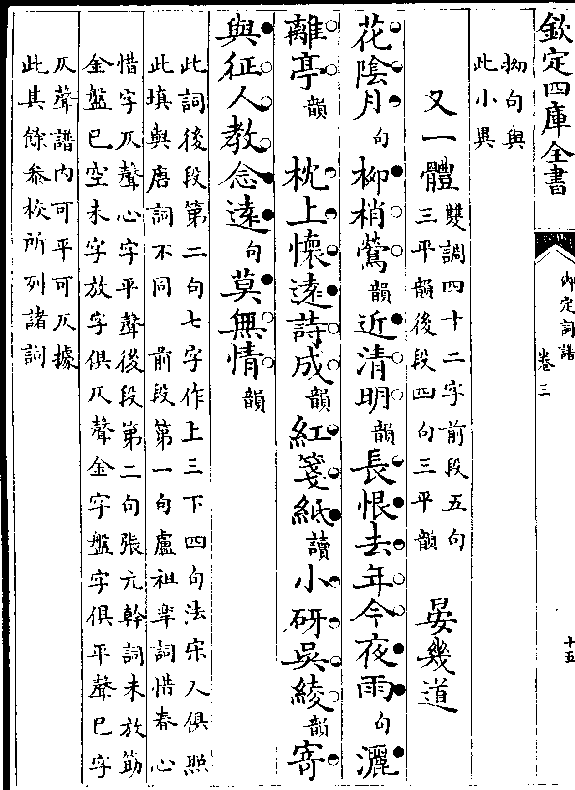 欽定四庫全書
御定詞譜
卷三
十五
拗句與
此小異
又一體
雙調四十二字前段五句
三平韻後段四句三平韻
晏幾道
花陰月句柳梢鶯韻近清明韻長恨去年今夜雨句灑
離亭韻 枕上懷遠詩成韻紅箋紙讀小硏吳綾韻寄
與征人教念遠句莫無情韻
此詞後段第二句七字作上三下四句法宋人俱照
此填與唐詞不同 前段第一句盧祖臯詞惜春心
惜字仄聲心字平聲後段第二句張元幹詞未放筯
金盤已空未字放字俱仄聲金字盤字俱平聲已字
仄聲譜內可平可仄據
此其餘叅校所列諸詞